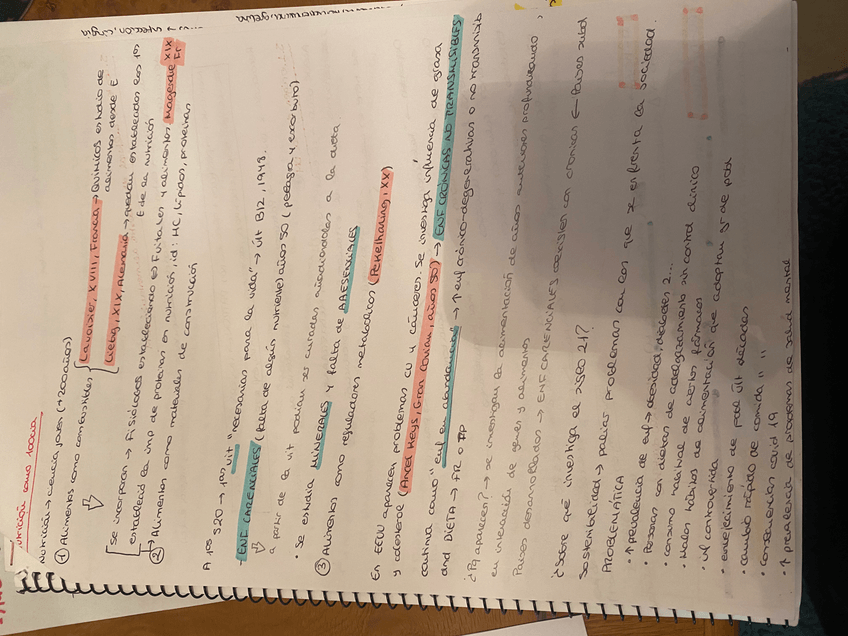 Nutrición como ciencia
Nutrición → ciencia joven (+200 años)
① Alimentos como combustibles
Lavoisier, XVIII, Francia → Químicos estudio de alimentos desde E
Liebig, XIX, Alemania → quedan establecidos los 1os
E de la nutrición
Se incorporan → Fisiólogos estableciendo es Fuitales y alimentos Magendie XIX Fr
estableció la imp de proteínas en nutrición, id: HC, lípidos, proteínas
② Alimentos como materiales de construcción
A 1os S20 → 1as vit "necesarias para la vida" → vit B12, 1948.
ENF CARENCIALES (falta de algún nutriente) años 50 (pelagra y escorbuto).
a partir de la vit podían ser curadas añadiéndolas a la dieta
• Se estudia MINERALES y falta de AAESENCIALES
③ Alimentos como reguladores metabólicos (Pekelharing, XX)
En EEUU aparecen problemas CV y cánceres. Se investiga influencia de grasa
y colesterol (Ancel Keys, Gran Covián, años 50) → ENF CRÓNICAS NO TRANSMISIBLES
continua como "enf en abundancia" → ↑ enf crónico-degenerativas o no transmisib
and DIETA → FR o FP
¿Pq aparecen? → se investigan la alimentación de años anteriores profundizando
en interacción de genes y alimentos
Países desarrollados → ENF CARENCIALES coexisten con crónicas ← Países subd
¿Sobre qué investiga el siglo 21?
Sostenibilidad → paliar problemas con los que se enfrenta la sociedad.
PROBLEMÁTICA
• ↑ prevalencia de enf → obesidad, diabetes 2...
• Personas con dietas de adelgazamiento sin control clínico
• consumo habitual de ciertos fármacos
• Malos hábitos de alimentación que adoptan gr de pob
• inf controvertida
• envejecimiento de pobl últ décadas
• cambio rápido de comida " "
• consecuencias covid 19
• ↑ prevalencia de problemas de salud mental